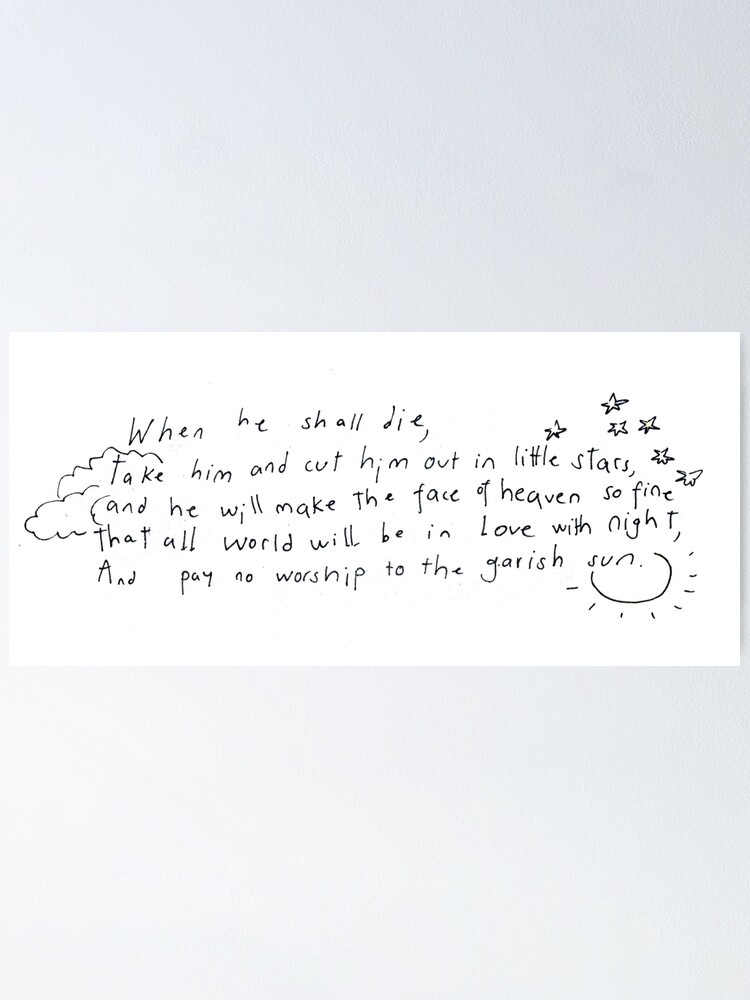 When he shall die,
Take him and cut him out in little stars,
and he will make the face of heaven so fine
that all world will be in Love with night,
And pay no worship to the garish sun.